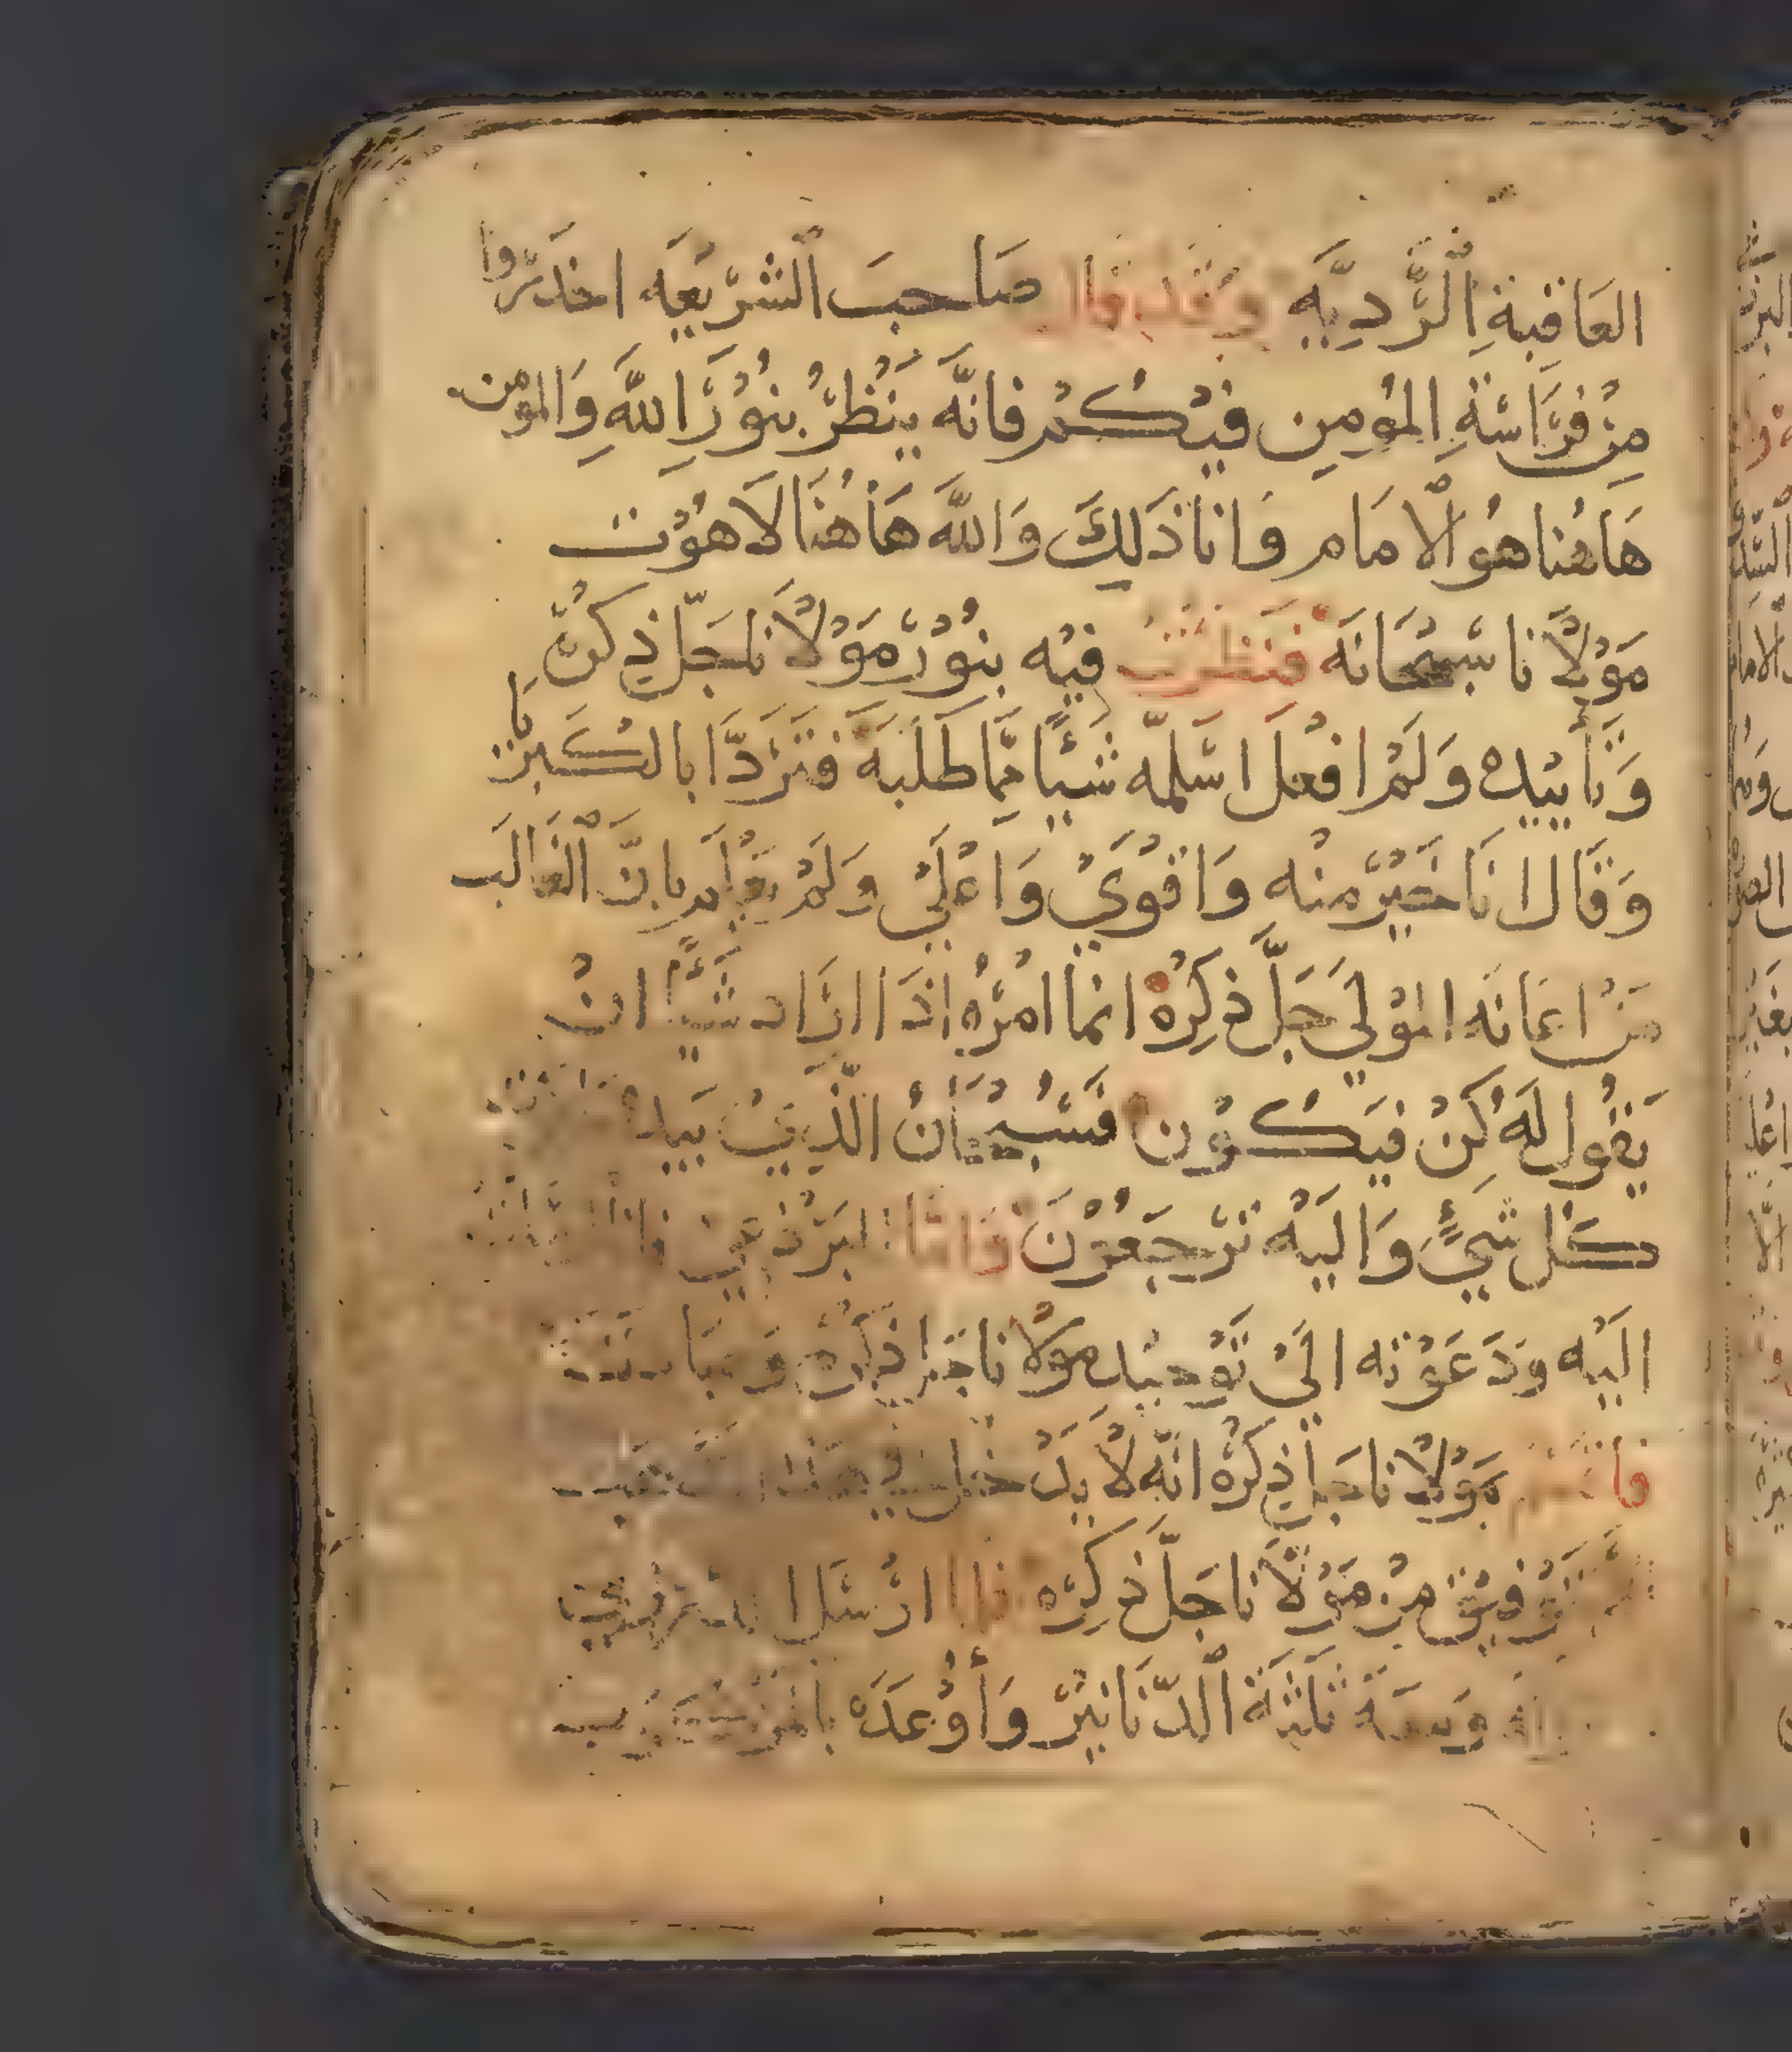 العَاقِبةِ الرَّدِيَّه وقد قال صَاحبَ الشرّيعَه احذرّوا
مِنْ فرَّاسَةِ المؤمِنِ فيْكُمْ فانَّه يَنْظرُ بنُوْرِ اللهِ وَالمومن
هَاهُنا هُو الامَام وَانا ذَلِكَ وَاللهَ هَاهُنَا لَاهوُت
مَوْلَانا سُبْحَانَهَ فنظرْتُ فيْه بنُوْرْ مَوْلَانا جَلّ ذِكرُه
وَتَأييْده وَلَمْ افعْل اسّلمّه شَيْئًا ممَّا طَلَبَهَ فتَردَّا بالكبريَا
وَقَالَ انَا خَيرّ منْه وَاقوَيْ وَاعْلَيْ وَلَمْ يعْلَم بانَّ الغَالَب
مَنْ اعَانَه الموْلي جَلَّ ذكِرُهْ انما امْرُهُ اذَا ارَاد شَيئًا انْ
يَقُول لَهُ كنْ فيَكُوْن فسُبْحَانْ الذِيْ بيَده
كل شَيءٍ وَاليَه ترْجَعوُنَ فَامَّا البَرْذعيْ فانا
اليَه ودَعَوْته اليْ تَوْحيْد مَوْلَانا جَل ذكرْه
مَوْلَانا جَل ذكرْه انّه لا
توفيْق منْ مَوْلَانا جَلَّ ذكِرْه فلما ارْسَل
ثلَثَة الدّنَانيْرْ وَأوْعَدَه